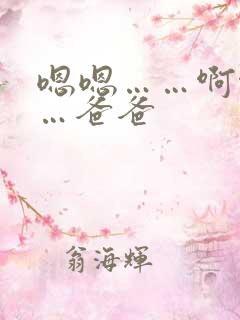 嗯嗯……啊
…爸爸
翁海輝